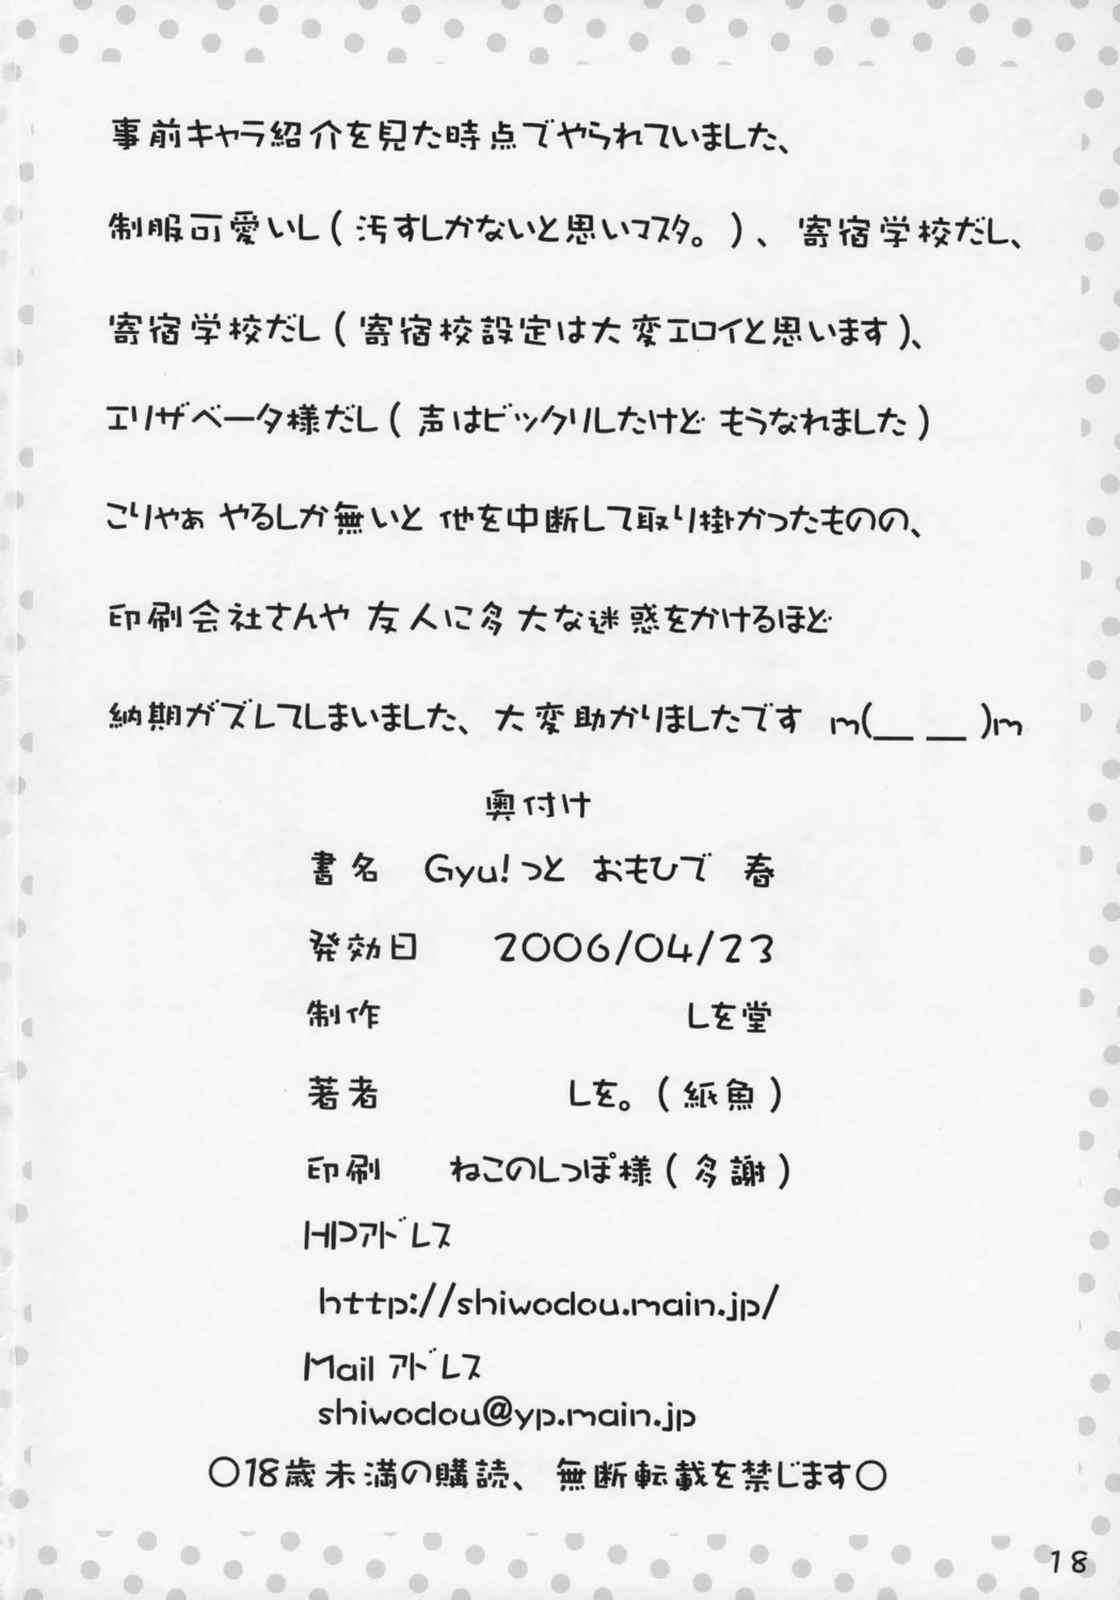 事前キャラ紹介を見た時点でやられていました、
制服可愛いし(汚すしかないと思いマスタ。)、寄宿学校だし、
寄宿学校だし(寄宿校設定は大変エロイと思います)、
エリザベータ様だし(声はビックリしたけど もうなれました)
こりゃぁ やるしか無いと 他を中断して取り掛かったものの、
印刷会社さんや 友人に多大な迷惑をかけるほど
納期がズレてしまいました、大変助かりましたです m(__ __)m
奥付け
書名 Gyu!っと おもひで 春
発効日 2006/04/23
制作 しを堂
著者 しを。(紙魚)
印刷 ねこのしっぽ様(多謝)
HPアドレス
http://shiwodou.main.jp/
Mail アドレス
shiwodou@yp.main.jp
○18歳未満の購読、無断転載を禁じます○
18